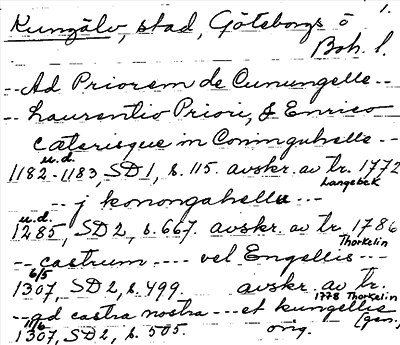 1.
Kungälv, stad, Göteborgs o
Boh. l.
-- Ad Priorem de Cunungelle --
-- Laurentio Priori, & Enrico
cæterisque in Coninguhelle --
u.d.
1182-1183, SD 1, s. 115. avskr. av tr. 1772
Langebek
-- j konongahellu --
u.d.
1285, SD 2, s. 667. avskr. av tr. 1786
Thorkelin
-- castrum ---- vel Engellis ---
6/5
1307, SD 2, s. 499. avskr. av tr.
1778 Thorkelin
-- ad castra nostra --- et kungellis
11/6 (gen.)
1307, SD 2, s. 505. orig.